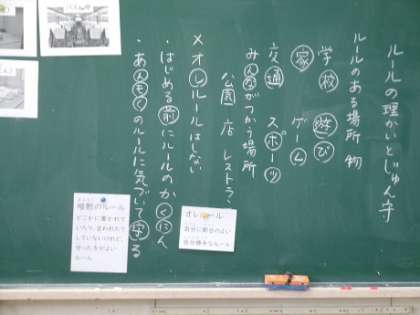 ルールの理かいとじゅん守
ルールのある場所 物
学校 遊び
家 ゲーム
交通 スポーツ
みんながつかう場所
公園 店 レストラン
×オレルールはしない
・はじめる前にルールのかくにん
・あんもくのルールに気づいて守る
オレルール
自分に都合のよい
自分勝手なルール
暗黙のルール
どこかに書かれて
いたり、言われたり
していないけれど、
守った方がよい
ルール